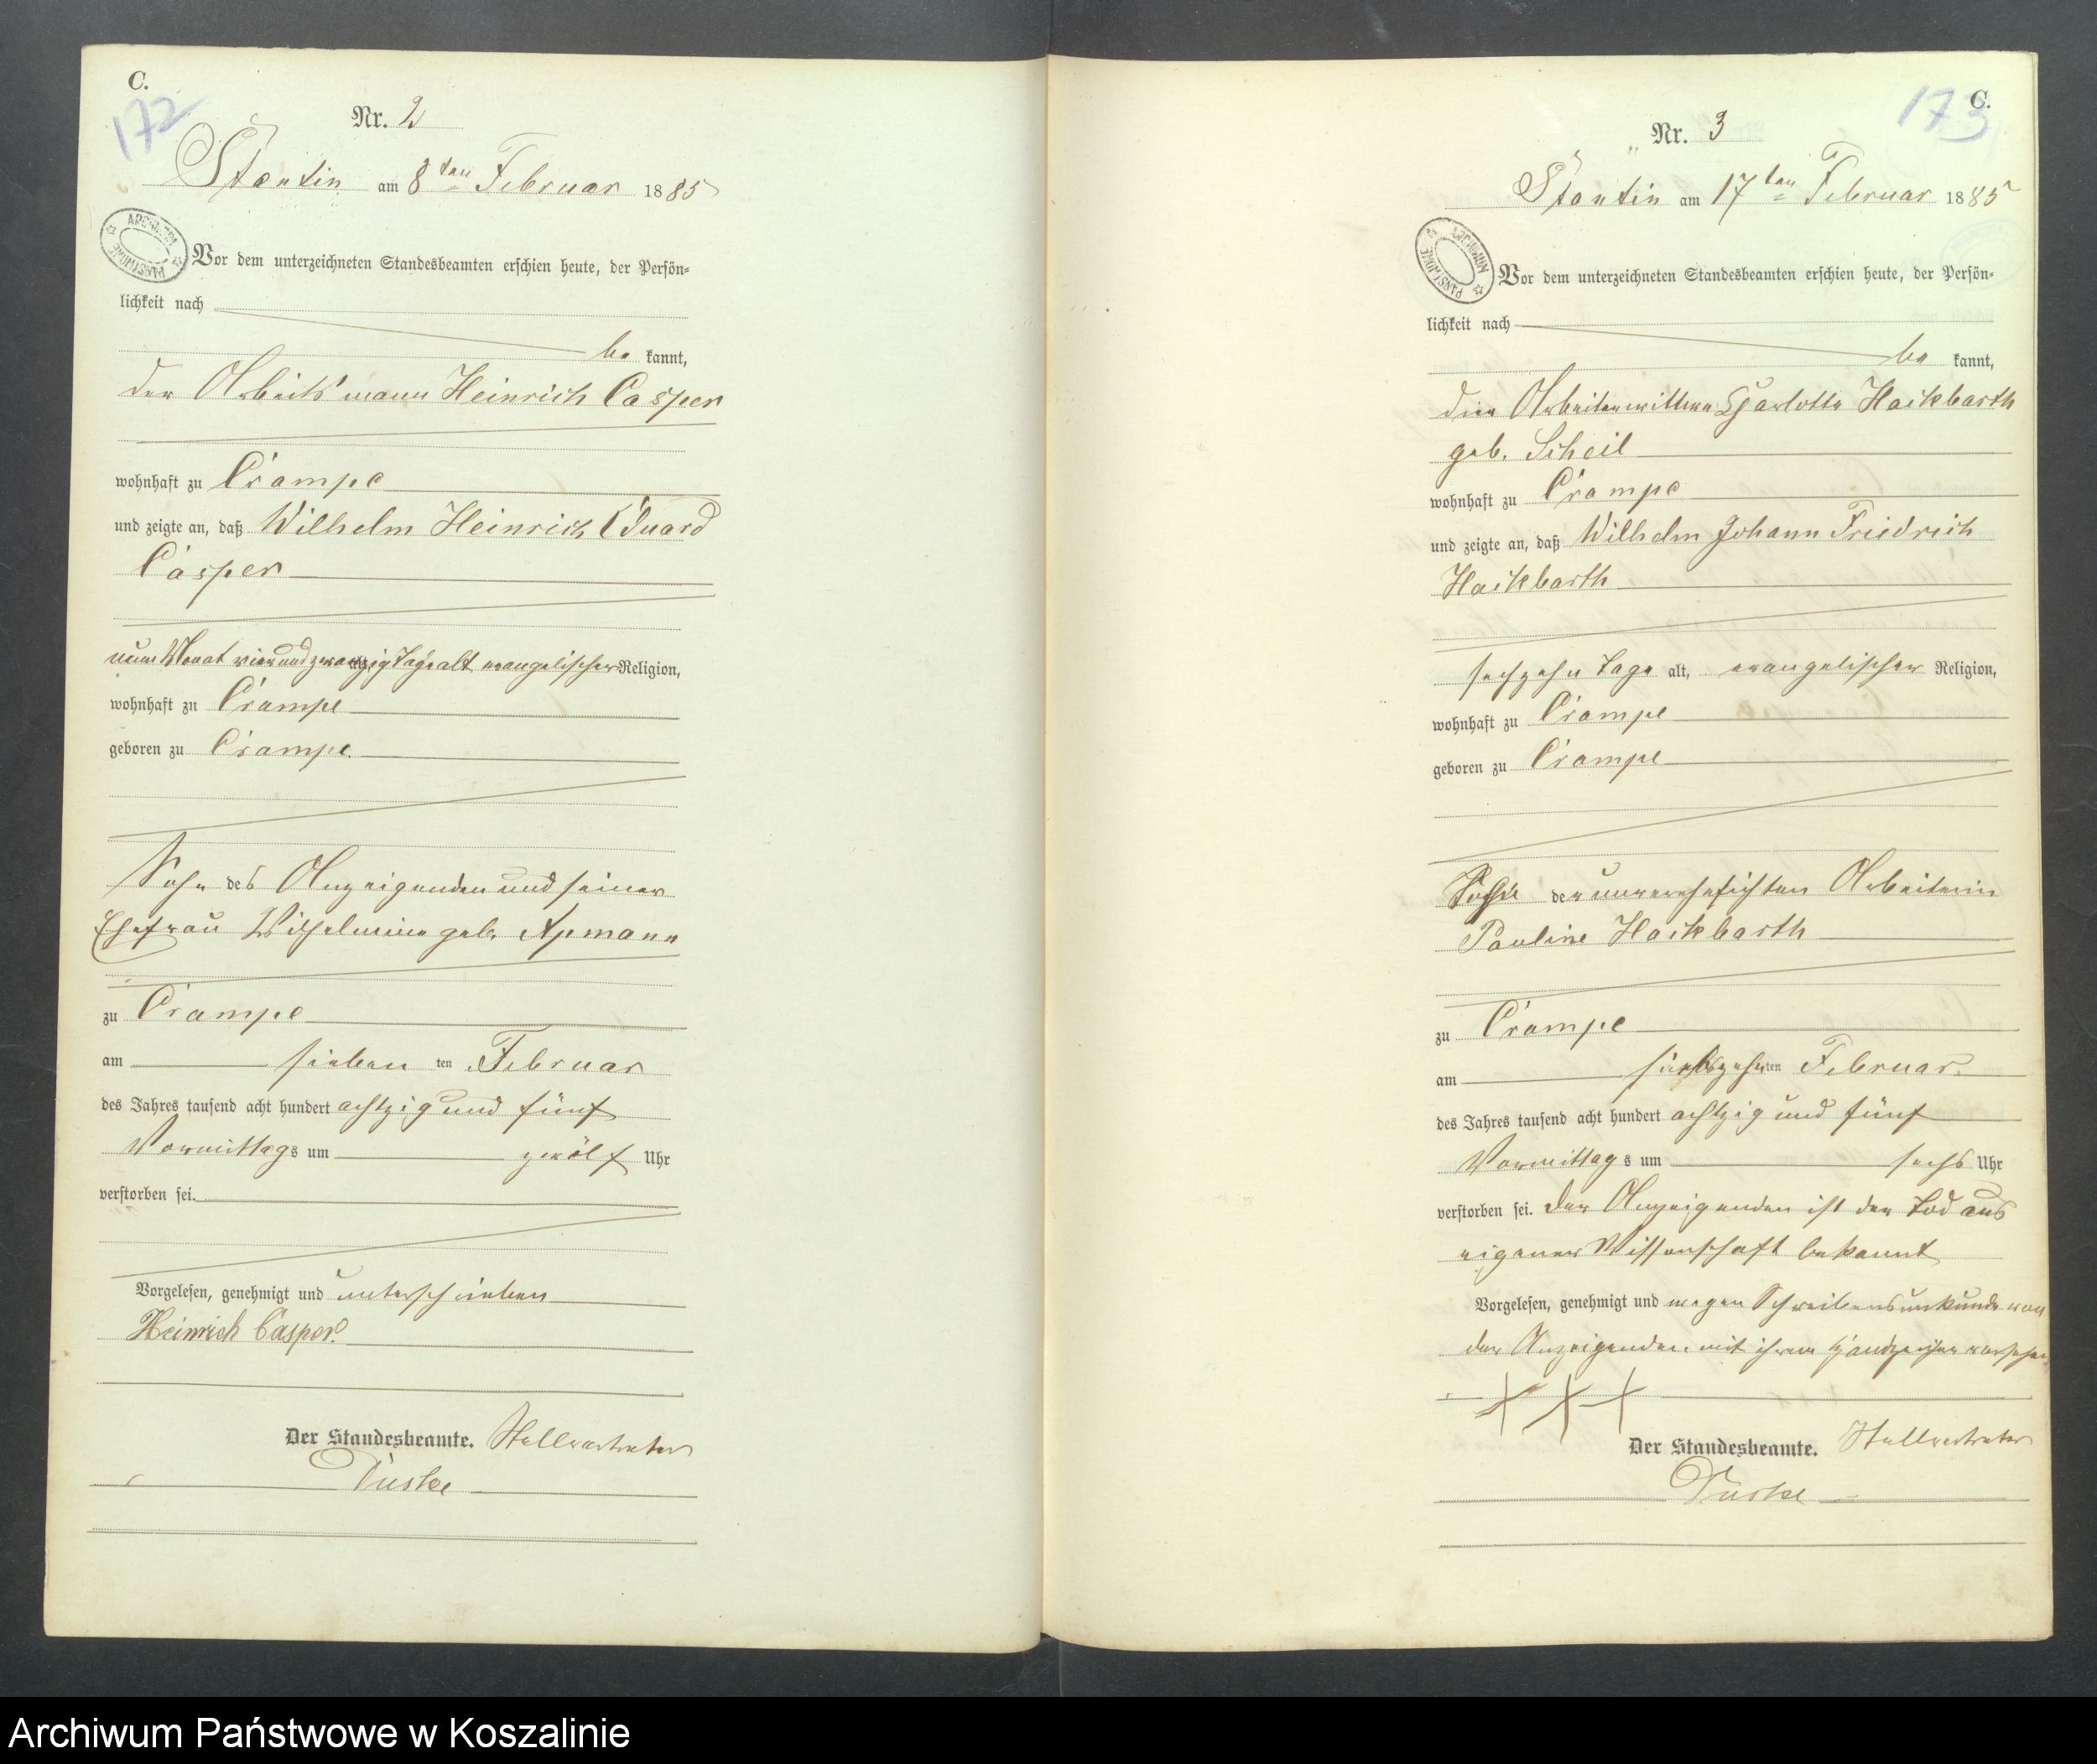 C.
172
Nr. 2
Stantin am 8ten Februar 1885
ARCHIWUM PAŃSTWOWE
Vor dem unterzeichneten Standesbeamten erschien heute, der Persön-
lichkeit nach
be kannt,
der Arbeitsmann Heinrich Casper
wohnhaft zu Crampe
und zeigte an, daß Wilhelm Heinrich Eduard
Casper
neun Monat vierundzwanzig Tage alt evangelischer Religion,
wohnhaft zu Crampe
geboren zu Crampe
Sohn des Anzeigenden und seiner
Ehefrau Wilhelmine geb. Apmann
zu Crampe
am sieben ten Februar
des Jahres tausend acht hundert achtzig und fünf
Vormittags um zwölf Uhr
verstorben sei.
Vorgelesen, genehmigt und unterschrieben
Heinrich Casper
Der Standesbeamte. Stellvertreter
C.
173
Nr. 3
Stantin am 17ten Februar 1885
ARCHIWUM PAŃSTWOWE
Vor dem unterzeichneten Standesbeamten erschien heute, der Persön-
lichkeit nach
be kannt,
die Arbeiterwittwe Charlotte Hackbarth
geb. Scheil
wohnhaft zu Crampe
und zeigte an, daß Wilhelm Johann Friedrich
Hackbarth
sechzehn Tage alt, evangelischer Religion,
wohnhaft zu Crampe
geboren zu Crampe
Sohn der unverehelichten Arbeiterin
Pauline Hackbarth
zu Crampe
am ten Februar
des Jahres tausend acht hundert achtzig und fünf
Vormittags um sechs Uhr
verstorben sei. Der Anzeigenden ist der Tod aus
eigener Wissenschaft bekannt
Vorgelesen, genehmigt und wegen Schreibensunkunde von
der Anzeigenden mit ihrem Handzeichen versehen
+ + +
Der Standesbeamte. Stellvertreter
Archiwum Państwowe w Koszalinie